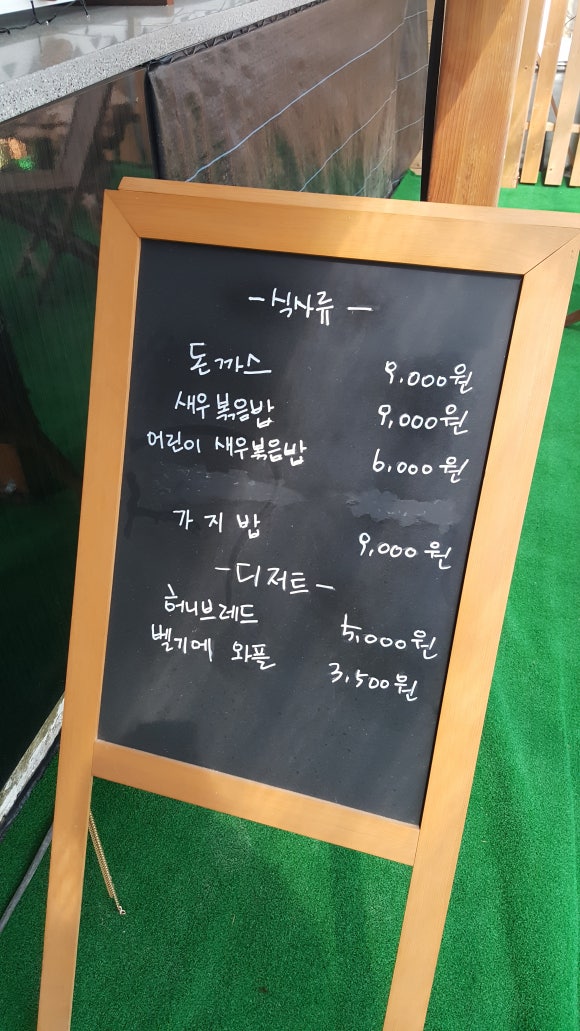 -식사류-
돈까스 9.000원
새우볶음밥 9,000원
어린이 새우볶음밥 6.000원
가지밥 9,000원
-디저트-
허니브레드 5,000원
벨기에 와플 3.500원